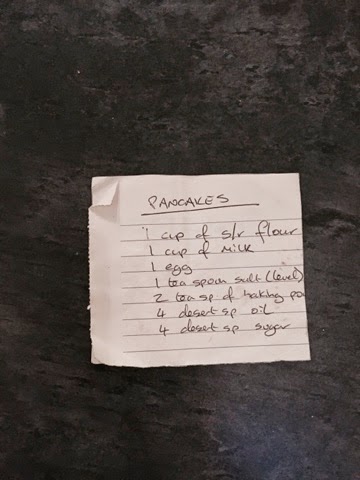 PANCAKES
1 cup of s/r flour
1 cup of milk
1 egg
1 tea spoon salt (level)
2 teasp of baking po
4 desert sp oil
4 desert sp sugar